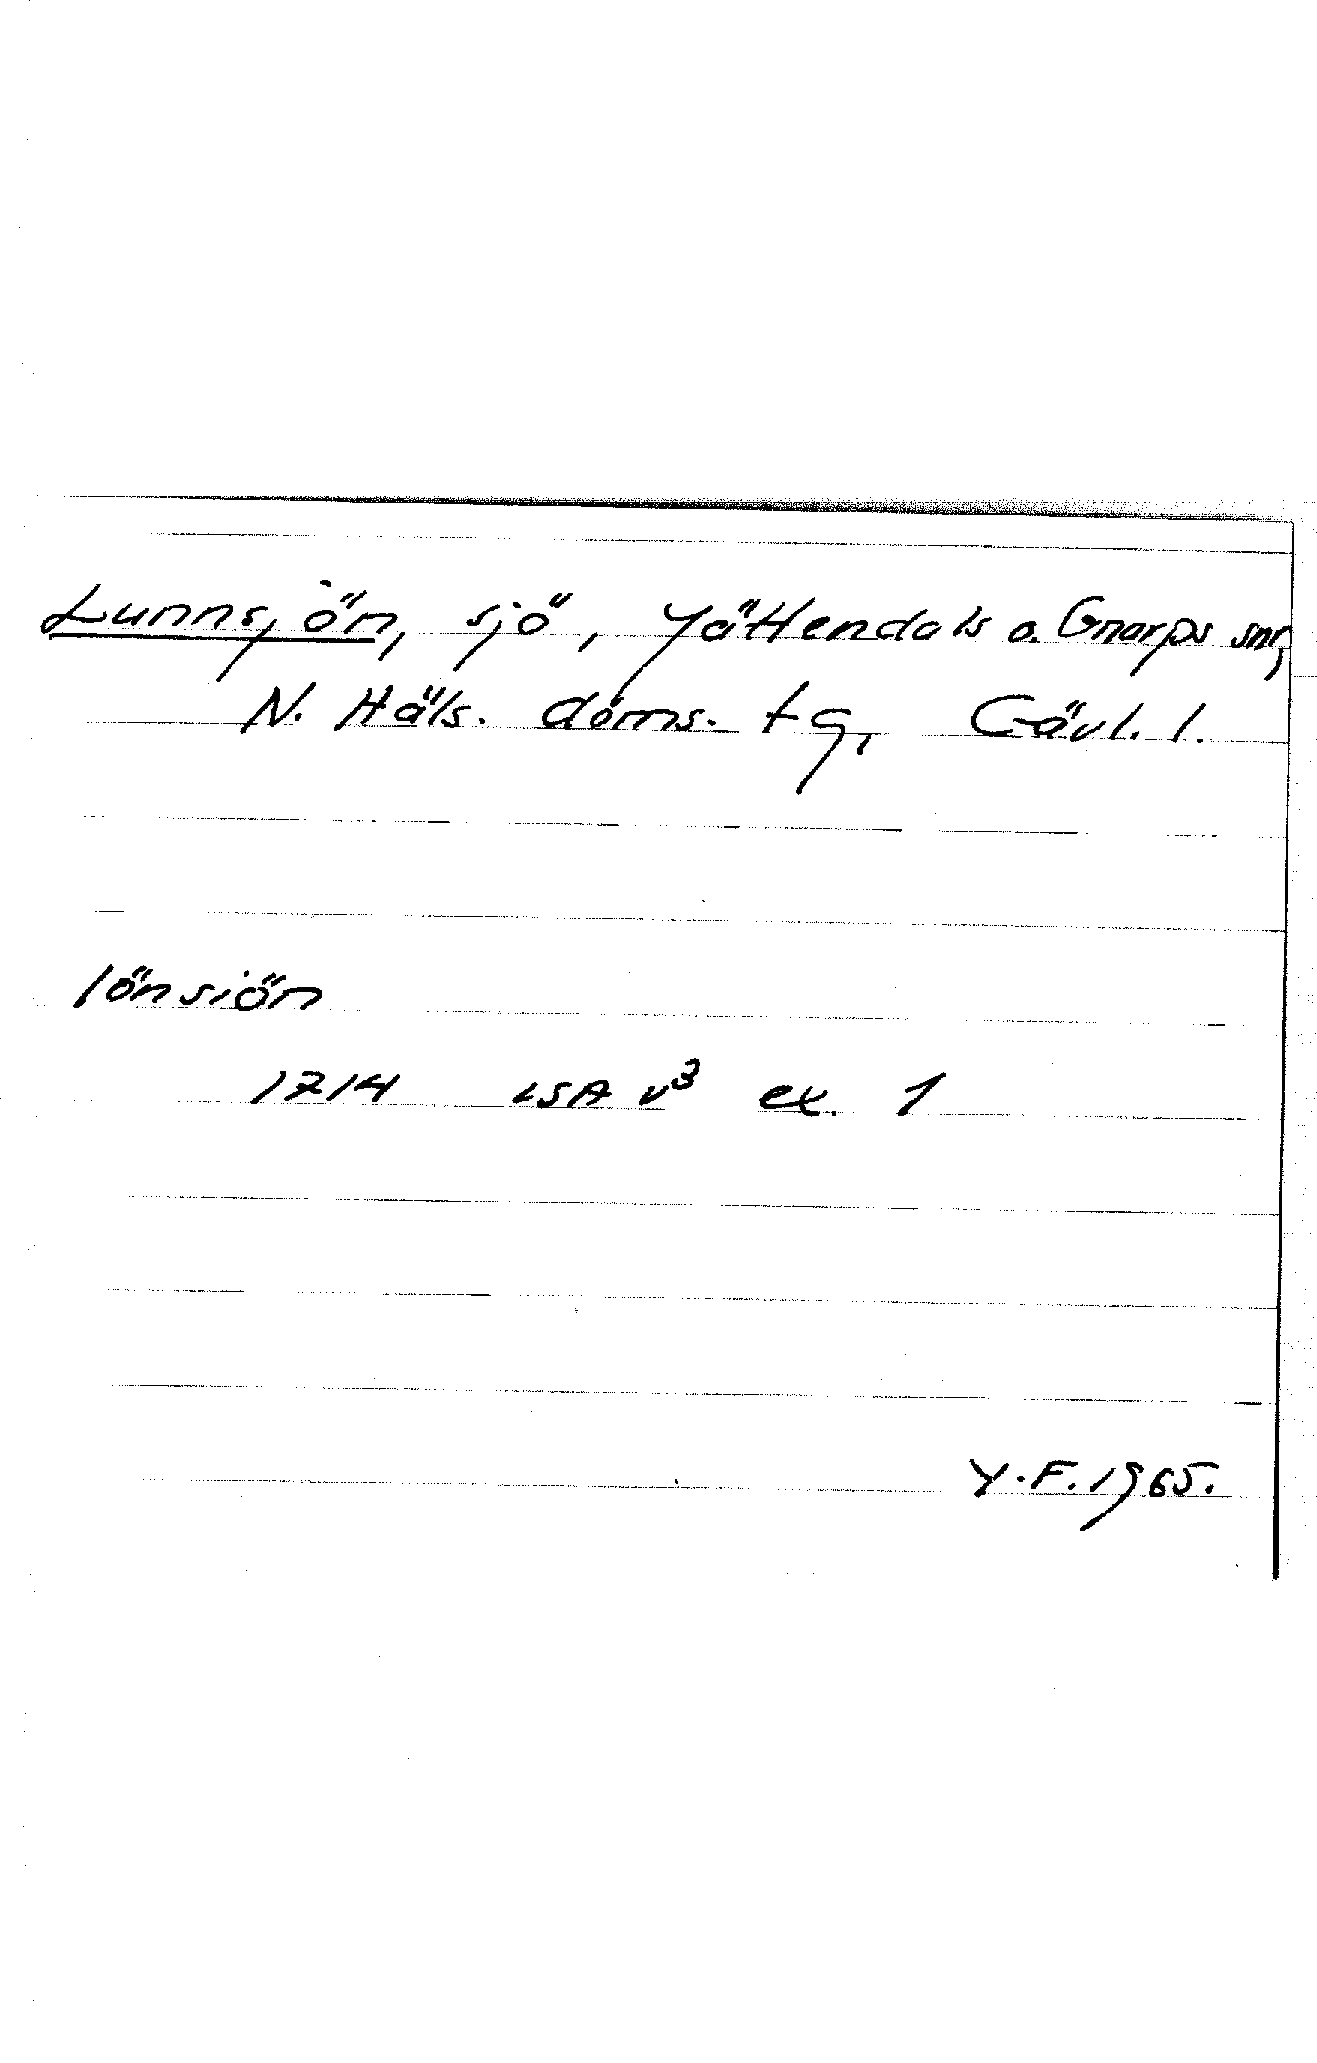 Lunnsjön, sjö, Jättendals o. Gnarps snr,
N. Häls. doms. tg, Gävl. l.
lönsiön
1714 LSA v³ ex. 1
Y.F. 1965.